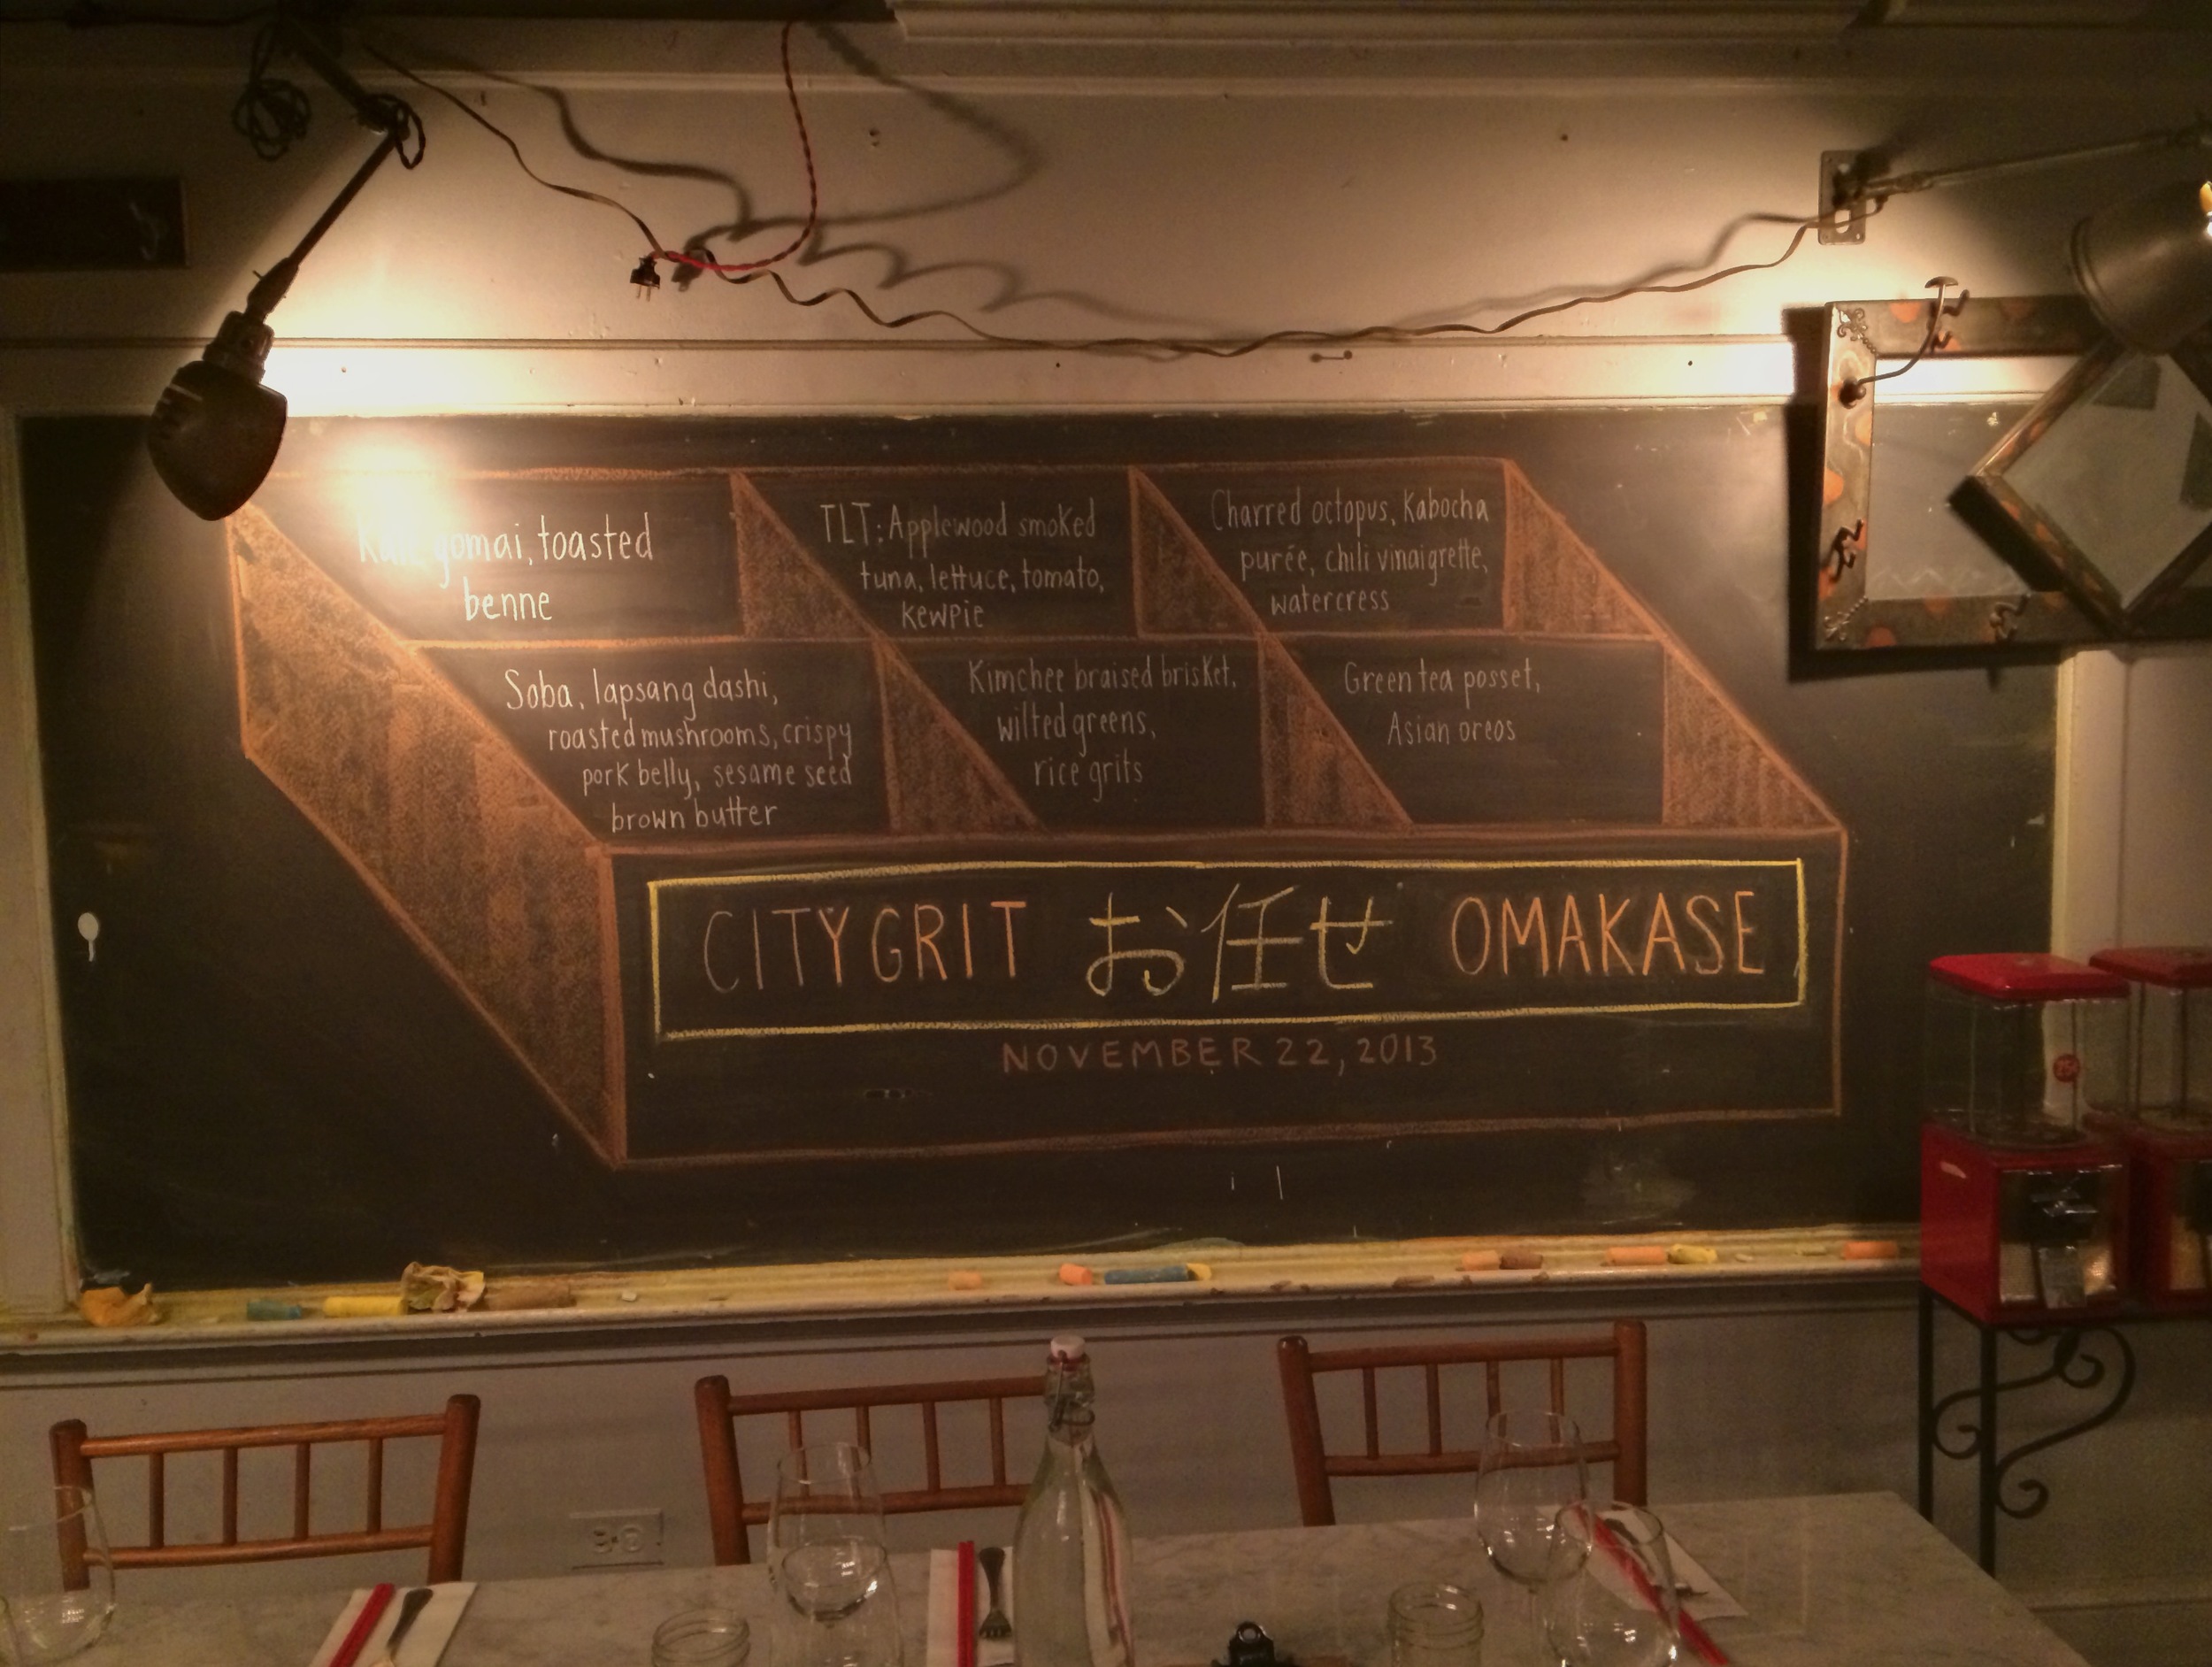 Kale gomai, toasted
benne
TLT: Applewood smoked
tuna, lettuce, tomato,
Kewpie
Charred octopus, Kabocha
purée, chili vinaigrette,
watercress
Soba, lapsang dashi,
roasted mushrooms, crispy
pork belly, sesame seed
brown butter
Kimchee braised brisket,
wilted greens,
rice grits
Green tea posset,
Asian oreos
CITY GRIT お任せ OMAKASE
NOVEMBER 22, 2013
25¢